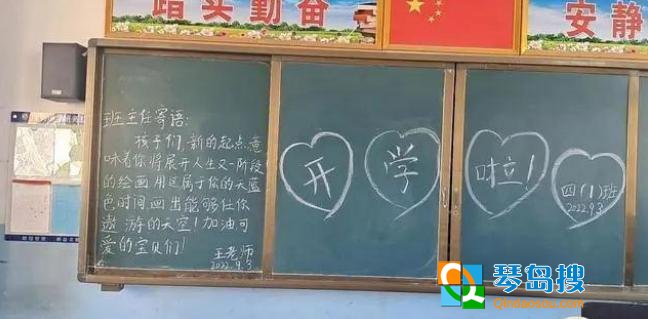 踏实勤奋
安静
班主任寄语:
孩子们,新的起点,意
味着你将展开人生又一阶段
的绘画 用这属于你的天蓝
色时间画出能够任你
遨游的天空!加油可
爱的宝贝们!
王老师
2022.9.3
开 学 啦!
四(1)班
2022.9.3
琴岛搜
Qindaosou.com